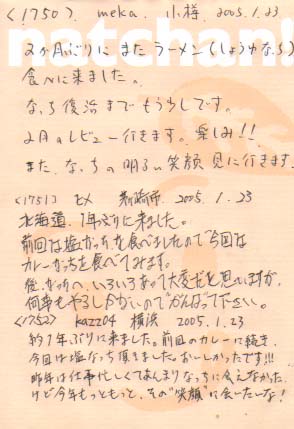 natchan!
〈1750〉 meka. 小樽 2005.1.23
2ヶ月ぶりに またラーメン(しょうゆなっち)
食べに来ました。
なっち復活まで もう少しです。
2月のレビュー行きます。楽しみ!!
また、なっちの明るい笑顔 見に行きます。
〈1751〉 2005.1.23
北海道、1年ぶりに来ました。
前回は塩なっちを食べましたので今回は
カレーなっちを食べてみます。
後、なっちへ、いろいろあって大変だと思いますが、
何事もやるしかないのでがんばって下さい。
〈1752〉 kazz04 横浜 2005.1.23
約1年ぶりに来ました。前回のカレーに続き、
今回は塩なっち頂きました。おいしかったです!!!
昨年は仕事忙しくてあんまりなっちに会えなかった
けど今年もっともっと、その"笑顔"に会いたいな!